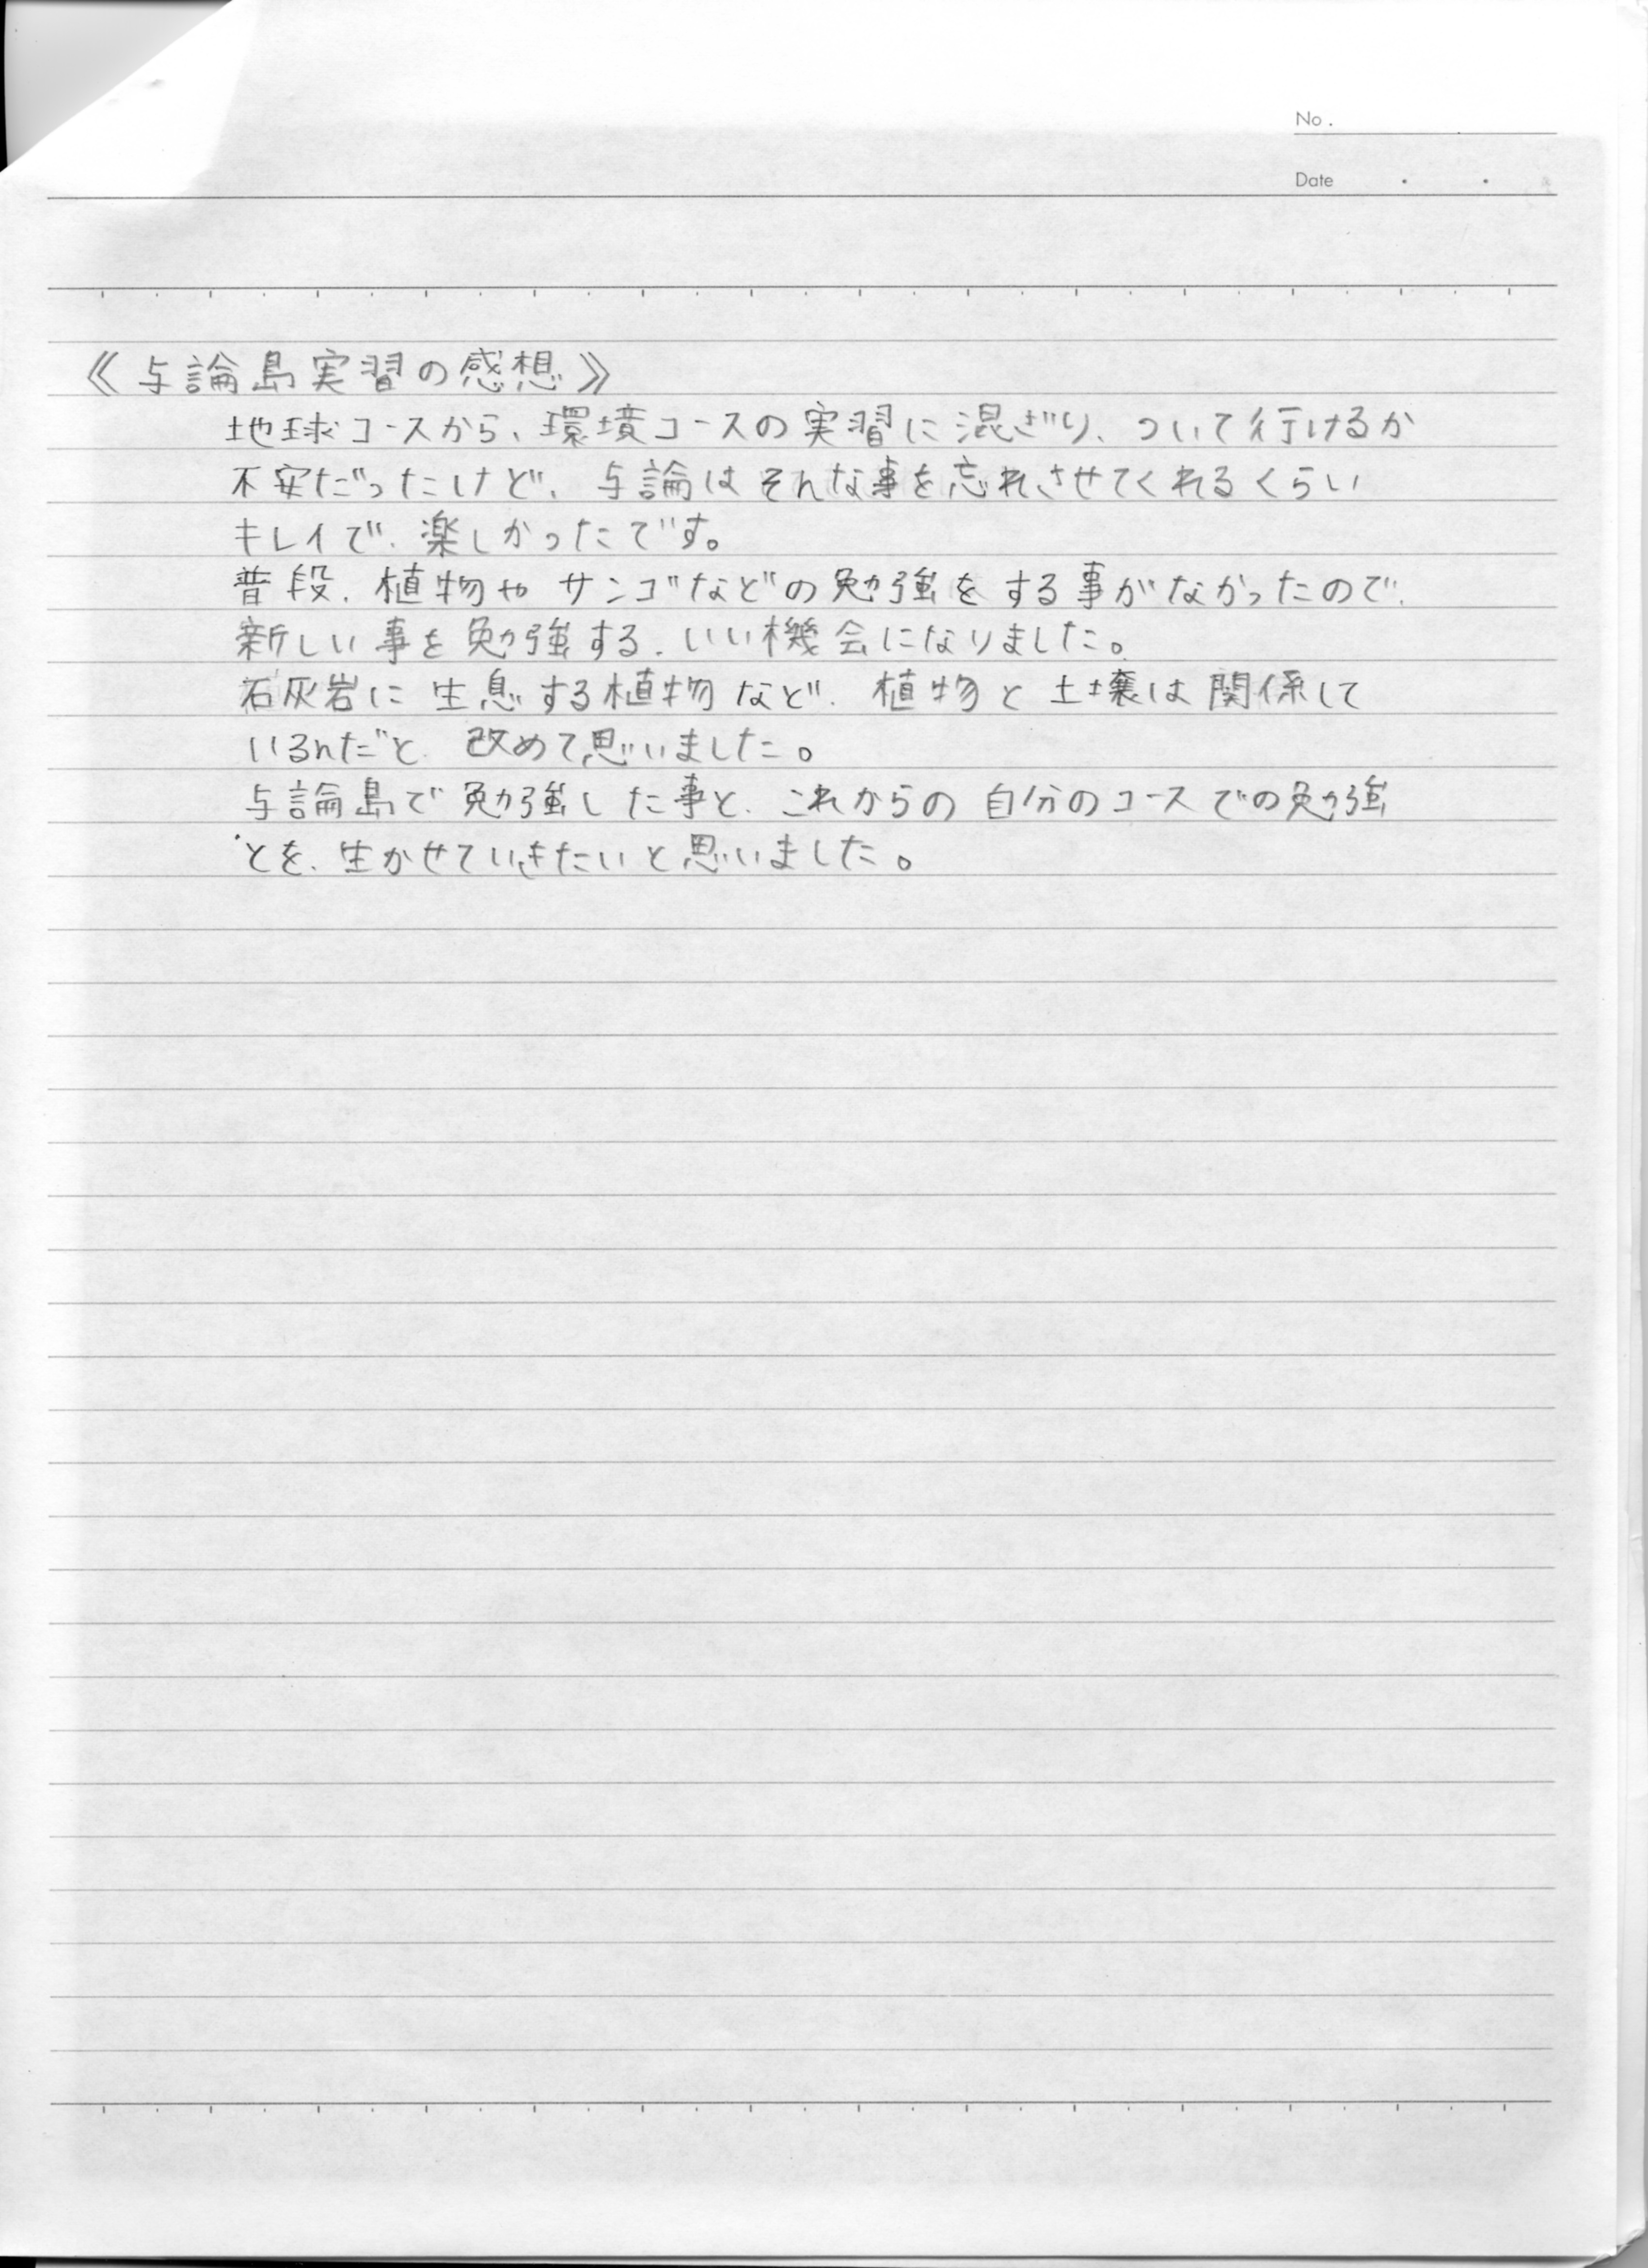 No.
Date
《与論島実習の感想》
地球コースから、環境コースの実習に混ざり、ついて行けるか
不安だったけど、与論はそんな事を忘れさせてくれるくらい
キレイで、楽しかったです。
普段、植物やサンゴなどの勉強をする事がなかったので、
新しい事を勉強する、いい機会になりました。
石灰岩に生息する植物など、植物と土壌は関係して
いるんだと、改めて思いました。
与論島で勉強した事と、これからの自分のコースでの勉強
とを、生かせていきたいと思いました。